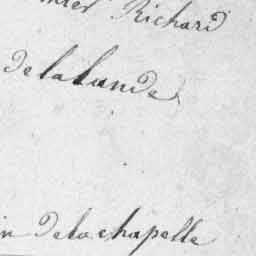 Richard
delalande
delachapelle